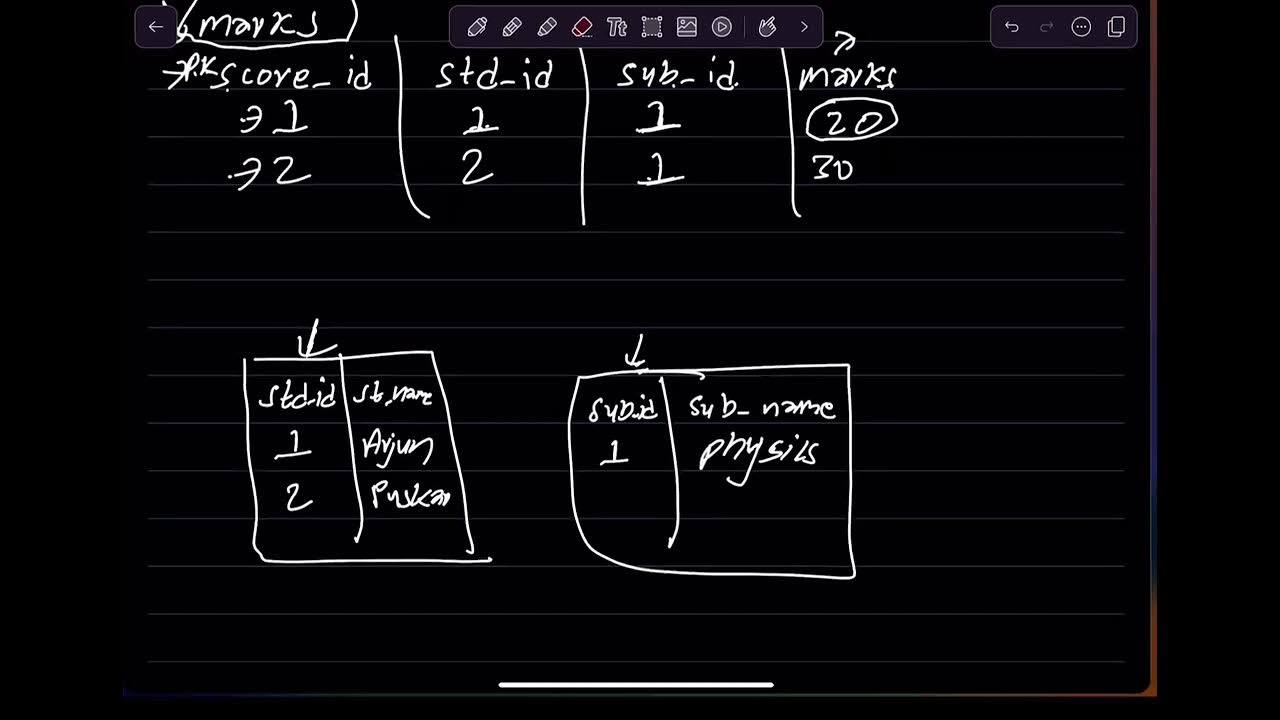 marks
P.K score_id std_id sub_id marks
→ 1 1 1 20
→ 2 2 1 30
std_id st_name
1 Arjun
2 Puskar
sub_id sub_name
1 physics
Tt